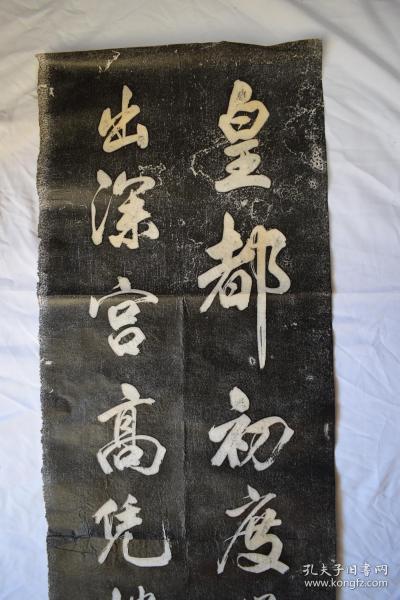 皇都初度
出深宫高凭
孔夫子旧书网
www.kongfz.com